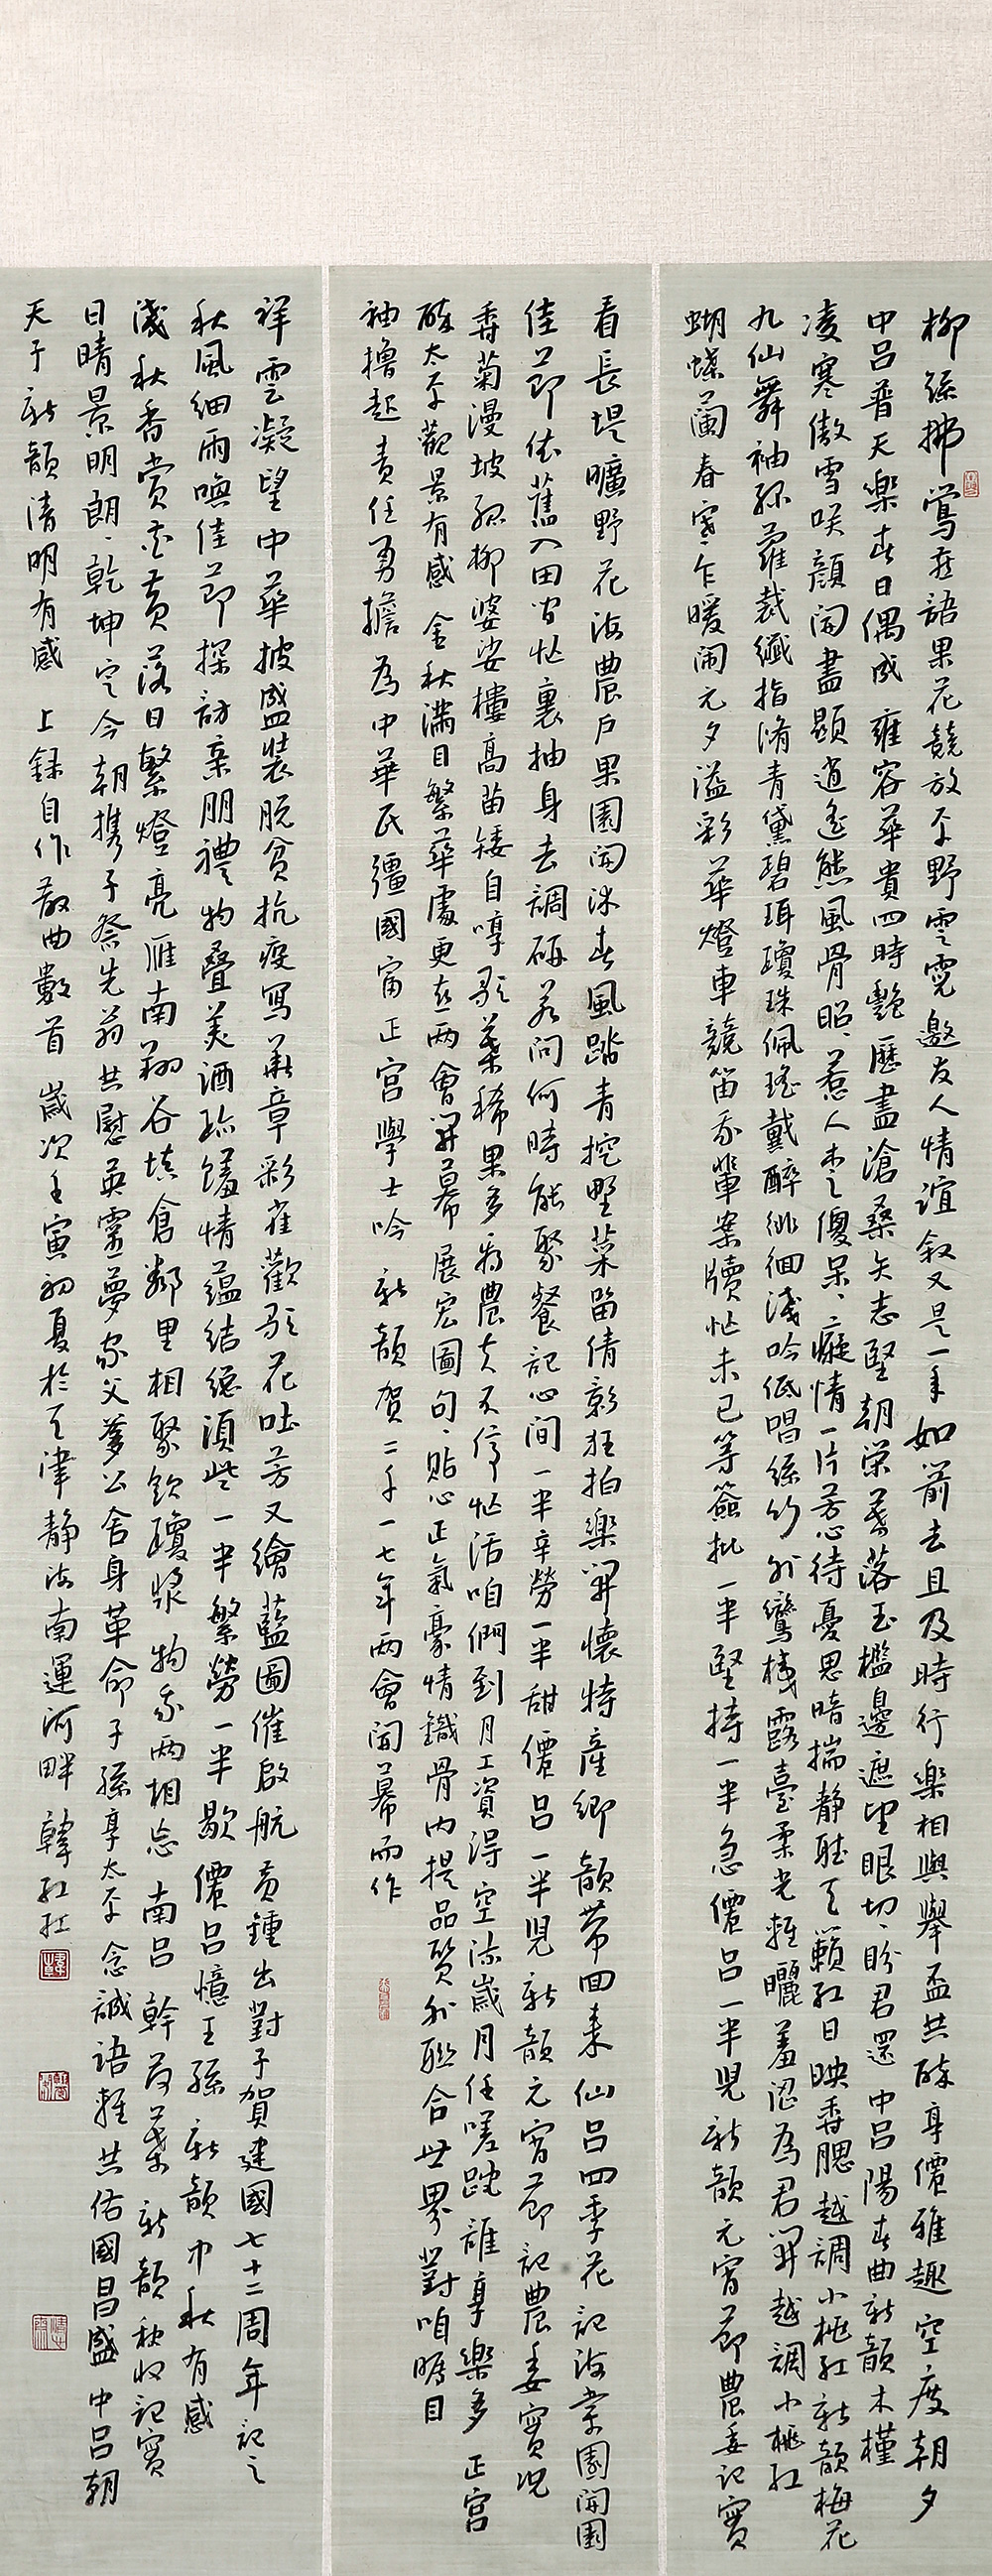 柳絲拂鶯燕語果花競放平野雲霓邀友人情誼叙又是一年如前去且及時行樂相與舉盃共醉享儂雅趣空度朝夕
中吕普天樂春日偶成 雍容華貴四時艷歷盡滄桑矢志堅朝榮暮落玉檻邊遮望眼切切盼君還 中吕陽春曲新韻木槿
凌寒傲雪咲顔開盡顯逍遥態風骨昭昭惹人愛傻呆呆癡情一片芳心待憂思暗揣静聽天籟紅日映香腮 越調小桃紅新韻梅花
九仙舞袖綠蘿裁纖指脩青黛碧珥瓊珠佩瑤戴醉徘徊淺吟低唱絲竹外鸞棧露臺柔光難曬羞澀為君開 越調小桃紅
蝴蝶蘭 春寒乍暖闹元夕溢彩華燈車競笛我輩案牘忙未已等簽批一半堅持一半急 儂吕一半兒新韻元宵節農委記實
看長堤曠野花海農户果園開沐春風踏青挖野菜留倩影狂拍樂開懷特産鄉韻帶回来 仙吕四季花記海棠園開園
佳節依舊入田皆忙裏抽身去調研若問何時能聚餐記心間一半辛勞一半甜 儂吕一半兒新韻元宵節記農委實况
香菊漫坡綠柳婆娑樓高苗矮自哼歌葉稀果多看農夫不停忙活咱們到月工資得空添歲月任嗟跎誰享樂多 正宫
醉太平觀景有感 金秋滿目繁華處更喜两會開幕展宏圖句句貼心正氣豪情鐵骨内提品質外聯合世界對咱矚目
袖擼起責任勇擔為中華民彊國富 正宫學士吟新韻賀二千一七年两會開幕而作
祥雲凝望中華披盛裝脱貧抗疫寫華章彩雀歡歌花吐芳又繪藍圖催啟航 黄鍾出對子賀建國七十二周年記之
秋風細雨喚佳節探訪亲朋禮物叠美酒珍饈情蘊結總須些一半繁勞一半歇 儂吕憶王孫新韻中秋有感
淺秋香賞杏黄落日繁燈亮雁南翔谷填倉鄰里相聚飲瓊漿物我两相忘 南吕幹荷葉新韻秋收記實
日晴景明朗朗乾坤定今朝携子祭先翁共慰英靈夢家父爹公舍身革命子孫享太平念誠語難共佑國昌盛 中吕朝
天子新韻清明有感 上録自作散曲數首 歲次壬寅初夏於天津静海南運河畔 韓紅紅